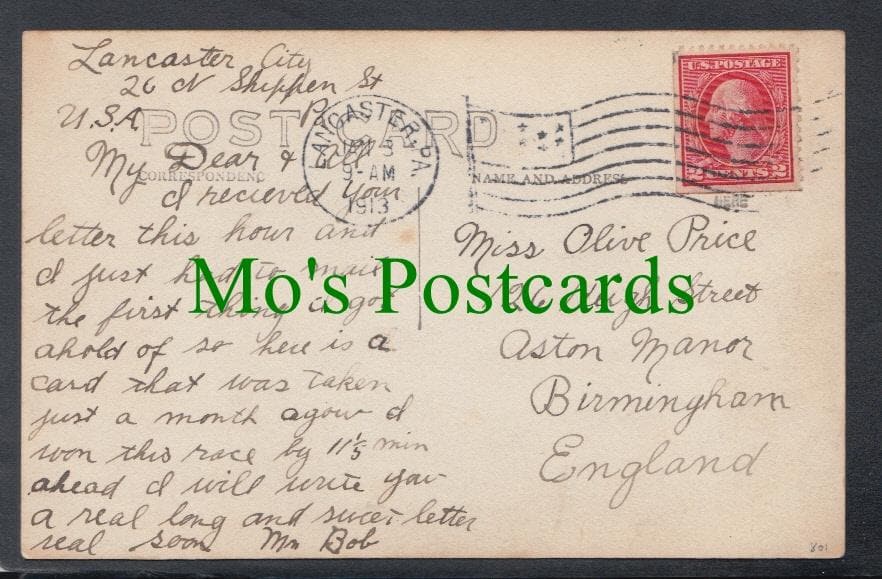 Lancaster City
26 N Shippen St
U.S.A Pa
POST CARD
LANCASTER, PA.
JAN 3
9-AM
1913
U.S. POSTAGE
2 CENTS 2
HERE
CORRESPONDENCE
NAME AND ADDRESS
My Dear & all
I recieved your
letter this hour and
I just had to mail
the first thing i got
ahold of so here is a
card that was taken
just a month agow I
won this race by 11 1/5 min
ahead I will write you
a real long and sweet letter
real soon Mr Bob
Miss Olive Price
Leigh Street
Aston Manor
Birmingham
England
Mo's Postcards
801